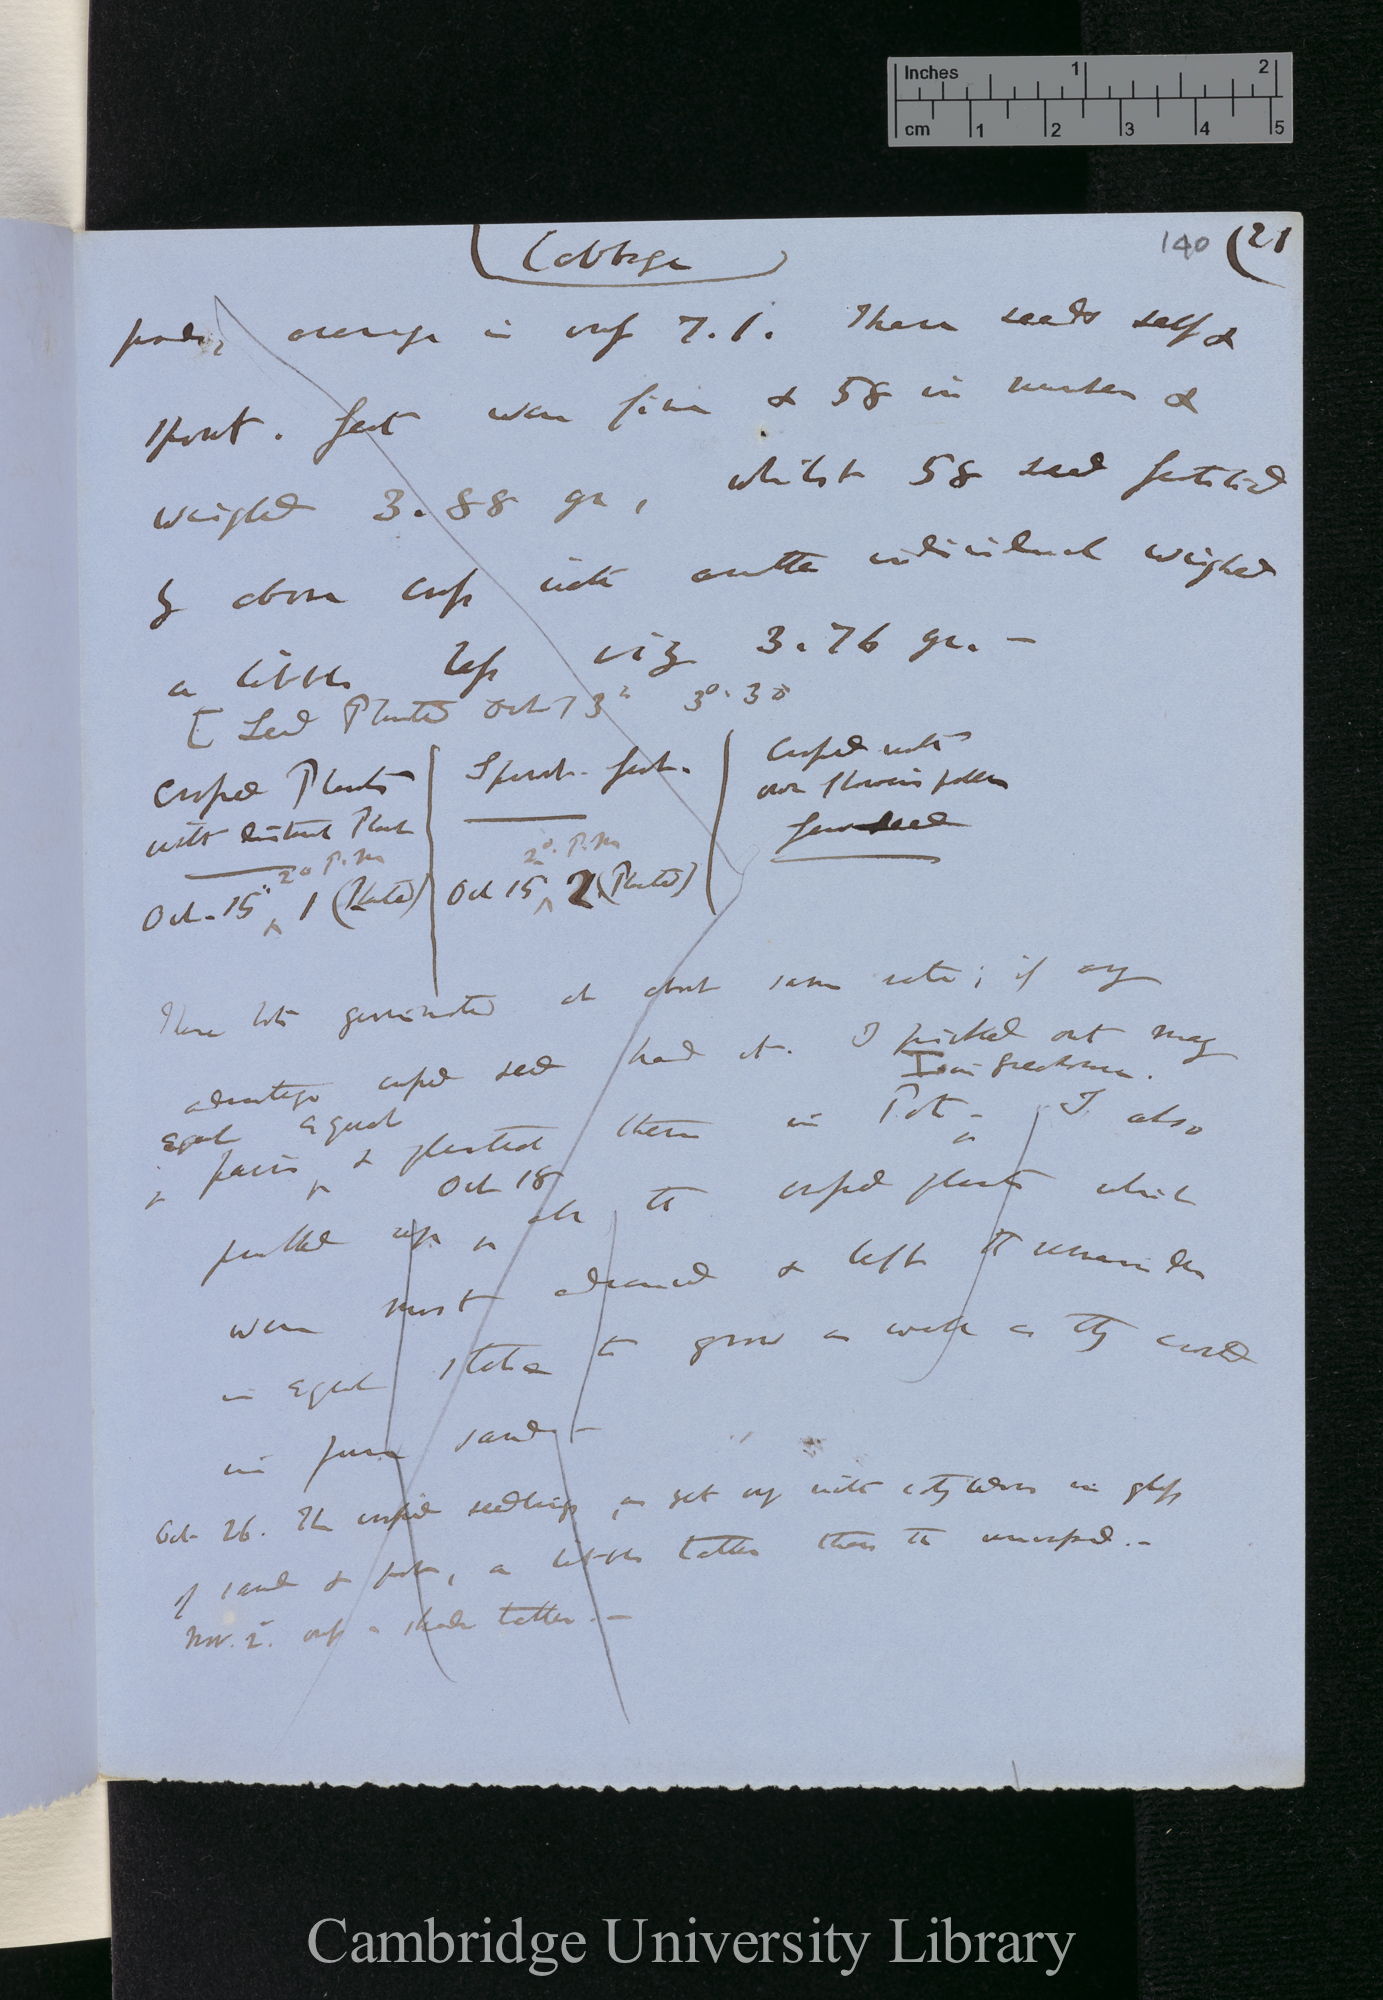 Inches 1 2
cm 1 2 3 4 5
Cabbage
140 (21
pods, average in 7.1. These seeds self &
spont. fert were fine & 58 in number &
weighed 3.88 gr, whilst 58 seed fertilised
by above cross with another individual weighed
a little less viz 3.76 gr. —
[ Seed Planted Oct 13th 3°. 30'
Crossed Plants
with distinct Plant
2° P.m
Oct. 15th ^ 1 (Planted)
Spont. fert.
2°. P.m
Oct 15 ^ 2 (Planted)
Crossed with
own flowers pollen
few seed
These lots germinated at about same rate; if any
advantage crossed seed had it. I picked out many
I in Greenhouse.
equal equal
^ pairs ^ & planted them in Pot - ^ I also
Oct 18
pulled up ^ all the crossed plants which
were most advanced & left the remainder
in equal states to grow as well as they could
in pure sand —
Oct 26. The crossed seedlings, as yet with cotyledons in glass
of sand & pot, a little taller than the uncrossed. —
Nov. 2. cross a shade taller. —
Cambridge University Library